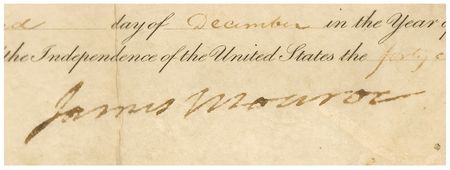 day of December in the Year
the Independence of the United States the forty
James Monroe